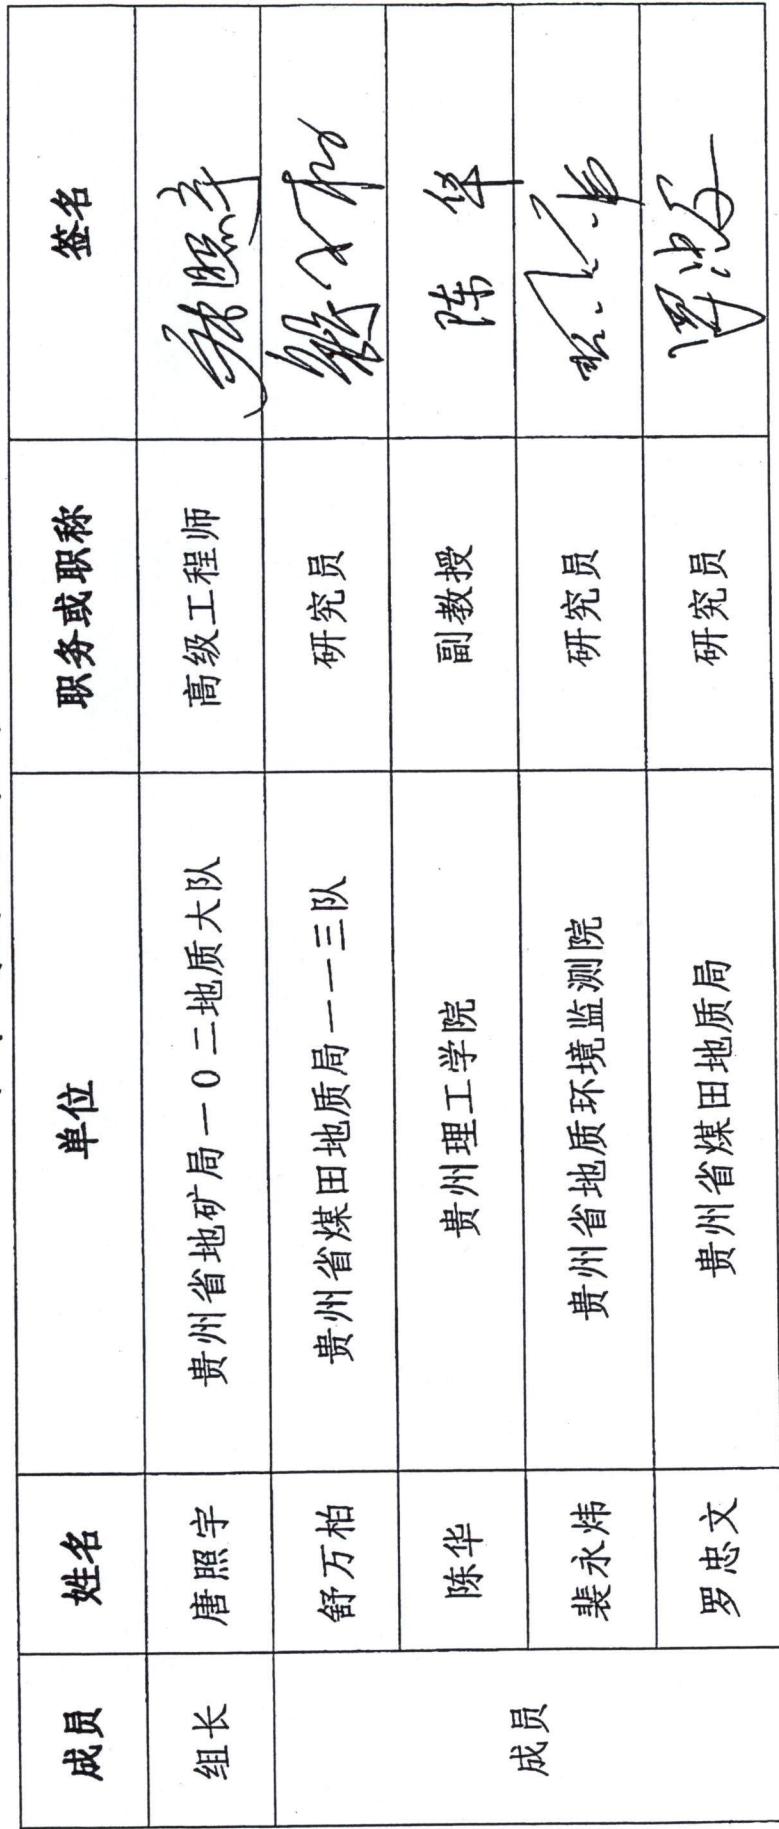 成员 姓名 单位 职务或职称 签名
组长 唐照宇 贵州省地矿局一0二地质大队 高级工程师
成员 舒万柏 贵州省煤田地质局一一三队 研究员
陈华 贵州理工学院 副教授 陈华
裴永炜 贵州省地质环境监测院 研究员
罗忠文 贵州省煤田地质局 研究员